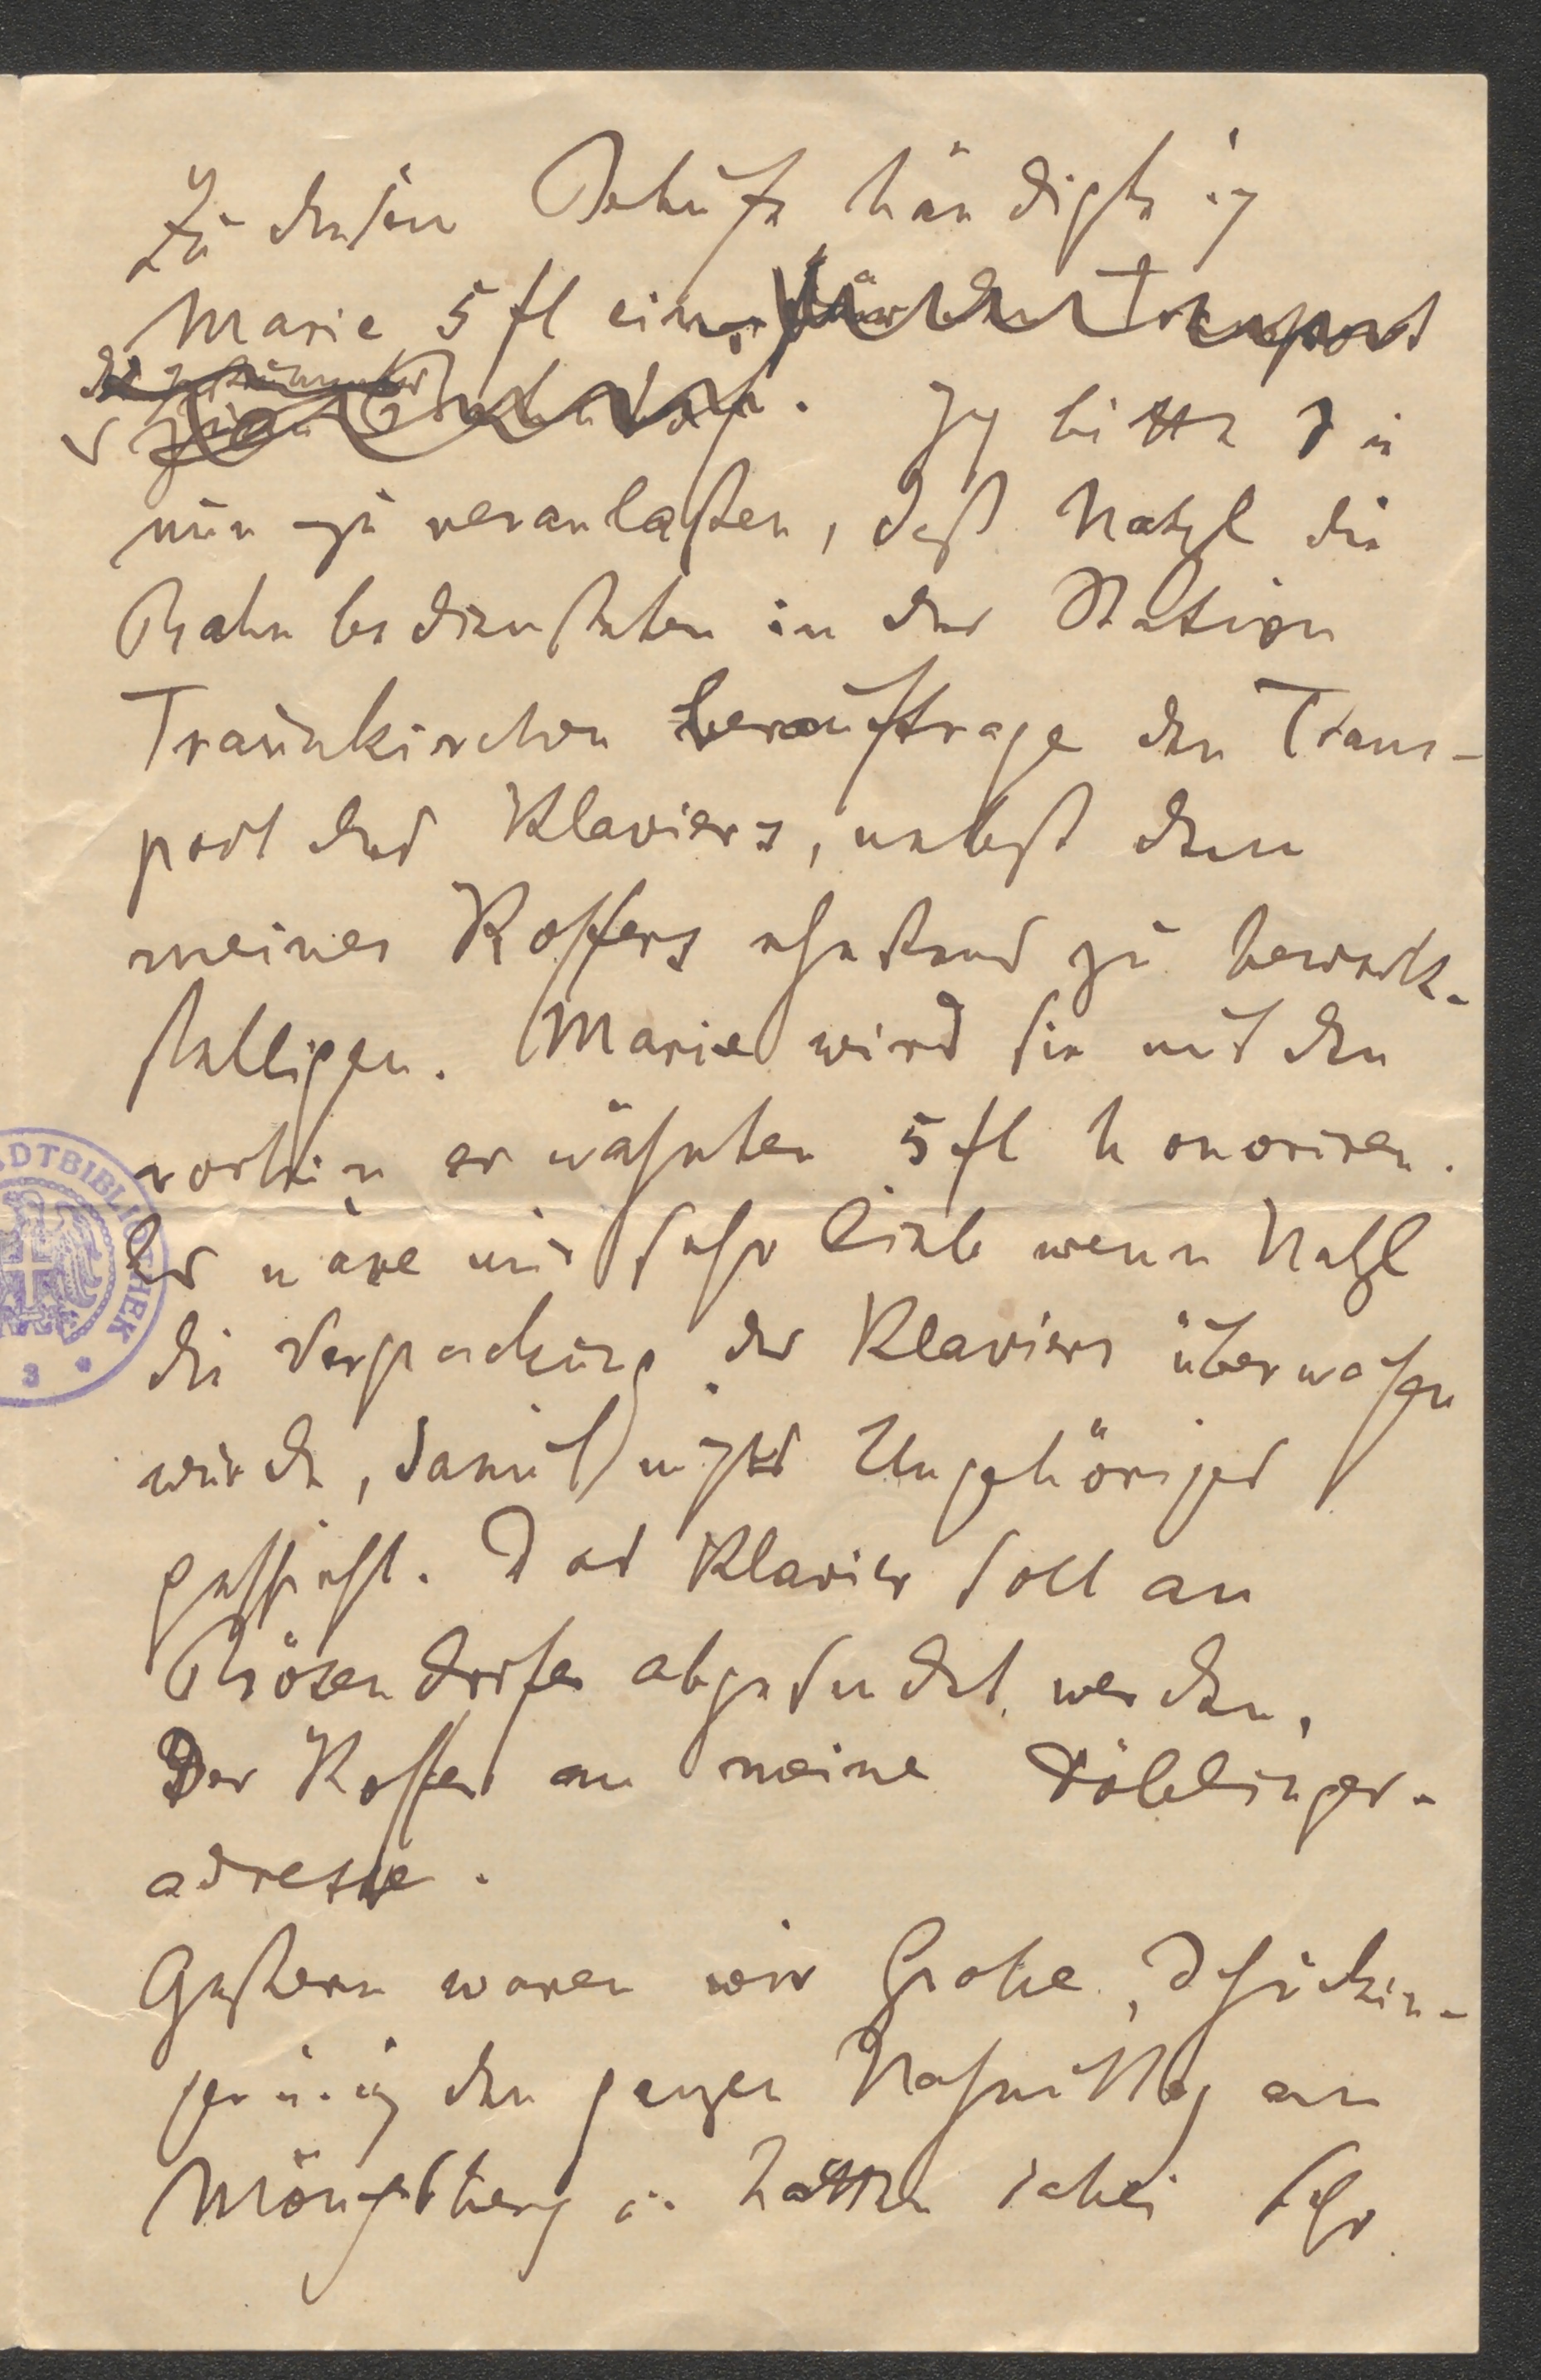 Zu diesem Behufe händigte ich
Marie 5 fl ein, für den Transport
des
Ich bitte Sie
nun zu veranlaßen, daß Natzl die
Bahnbediensteten in der Station
Traunkirchen beauftrage den Trans-
port des Klaviers, nebst dem
meines Koffers ehestens zu bewerk-
stelligen. Marie wird sie mit den
vorhin erwähnten 5 fl honoriren.
Es wäre mir sehr lieb wenn Natzl
die Verpackung des Klaviers überwachen
würde, damit nichts Ungehöriges
geschieht. Das Klavier soll an
Bösendorfer abgesendet werden,
Der Koffer an meine Döblinger-
adresse.
Gestern waren wir Grohe, Schückin-
ger u. ich den ganzen Nachmittag am
Mönchsberg u. hatten dabei sehr
DTBIBLIOTHEK